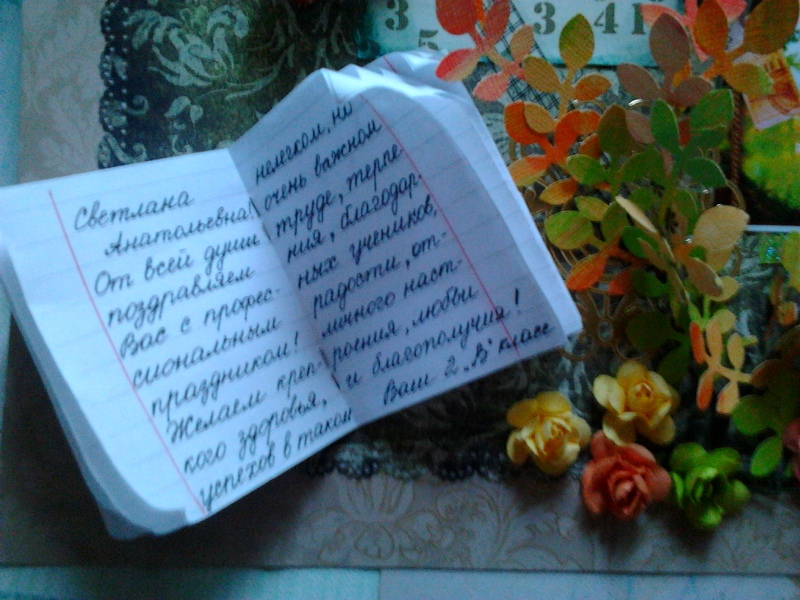 Светлана
Анатольевна!
От всей души
поздравляем
Вас с профес-
сиональным
праздником!
Желаем креп-
кого здоровья,
успехов в таком
нелегком, но
очень важном
труде, терпе
ния, благодар-
ных учеников,
радости, от-
личного наст-
роения, любви
и благополучия!
Ваш 2 „В" класс
3
3 4 1
5